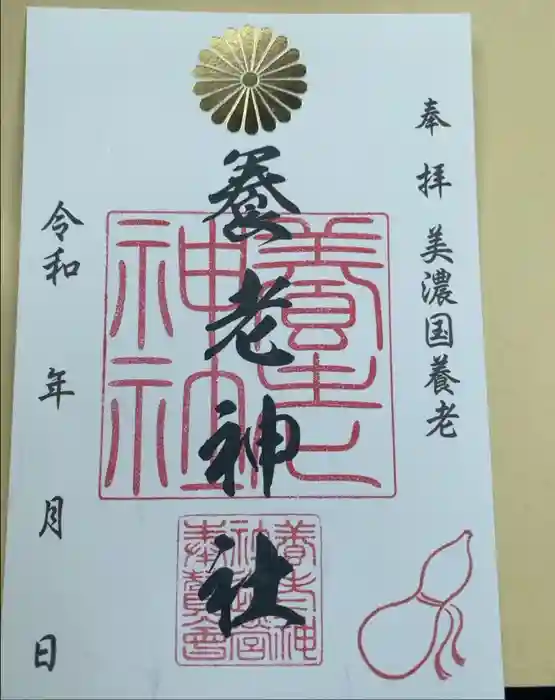 奉拝 美濃国養老
養老神社
養老神社
令和 年 月 日